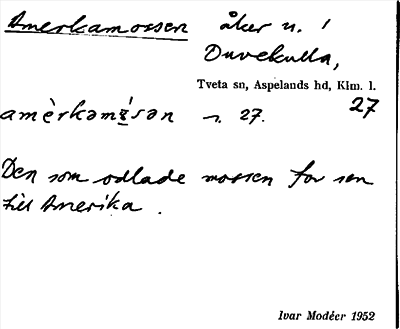 Amerkamossen åker n. 1
Duvekulla,
Tveta sn, Aspelands hd, Klm. l.
27
amèrkəmɔ́sən n. 27.
Den som odlade mossen for sen
till Amerika.
Ivar Modéer 1952